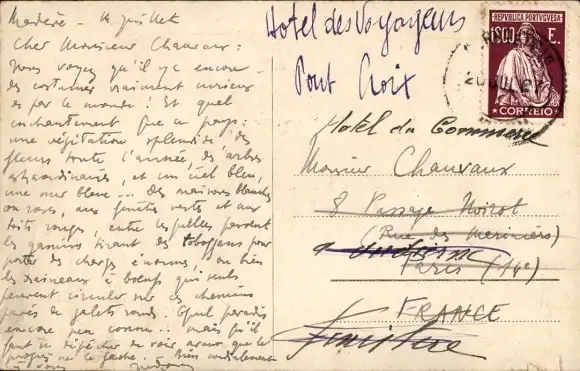 Madère - 14 juillet
Cher Monsieur Chauvaux :
Vous voyez qu'il y a encore
des costumes vraiment curieux
de par le monde ! Et quel
enchantement que ce pays :
une végétation splendide, des
fleurs toute l'année, des arbres
extraordinaires, et un ciel bleu,
une mer bleue... Des maisons blanches
ou roses, aux fenêtres vertes et aux
toits rouges, entre lesquelles passent
les gamins tirant des toboggans pour
porter des charges énormes, ou bien
les traineaux à boeufs qui seuls
peuvent circuler sur ces chemins
pavés de galets ronds. Quel paradis
encore peu connu... mais qu'il
faut se dépêcher de voir avant que le
progrès ne le gâche. Bien cordialement
à vous
Hotel des Voyageurs
Pont Croix
REPUBLICA PORTUGUESA
1$00 E.
CORREIO
20 JUL
Hotel du Commerce
Monsieur Chauvaux
8 Passage Noirot
(Rue des Mariniers)
a Audierne
Paris (14e)
FRANCE
Finistère